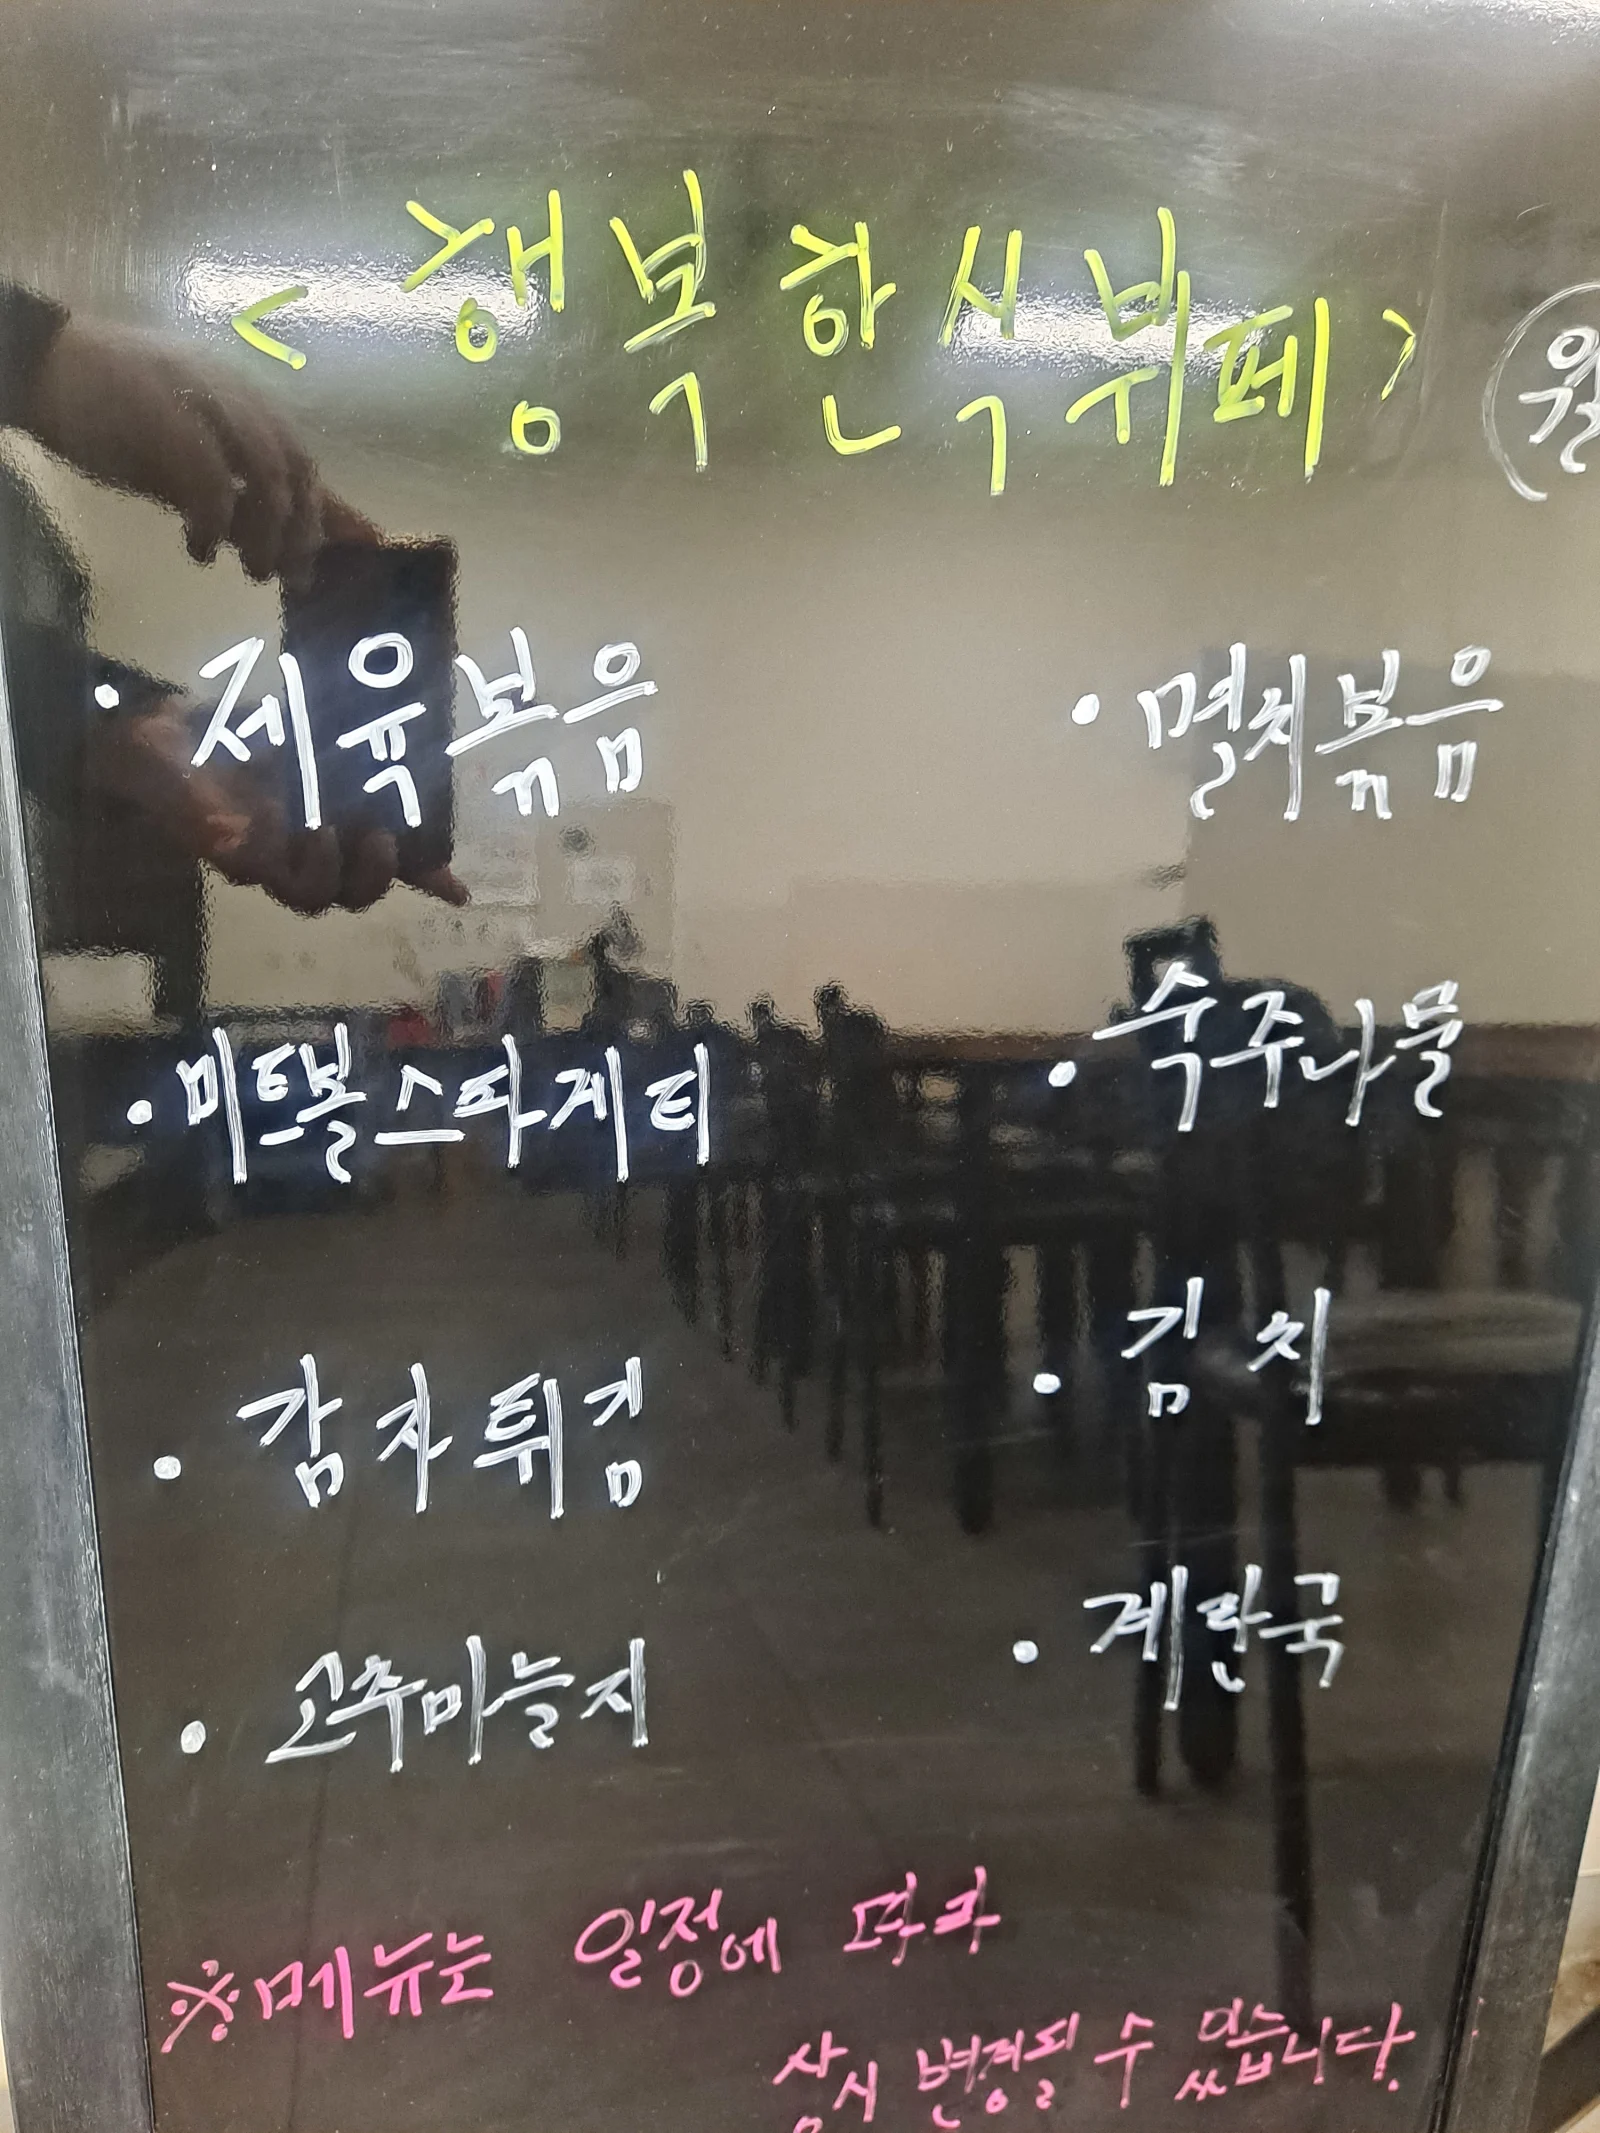 <행복한식뷔페> 월
· 제육볶음
· 멸치볶음
· 미트볼스파게티
· 숙주나물
· 감자튀김
· 김치
· 고추마늘지
· 계란국
※메뉴는 일정에 따라
상시 변경될 수 있습니다.